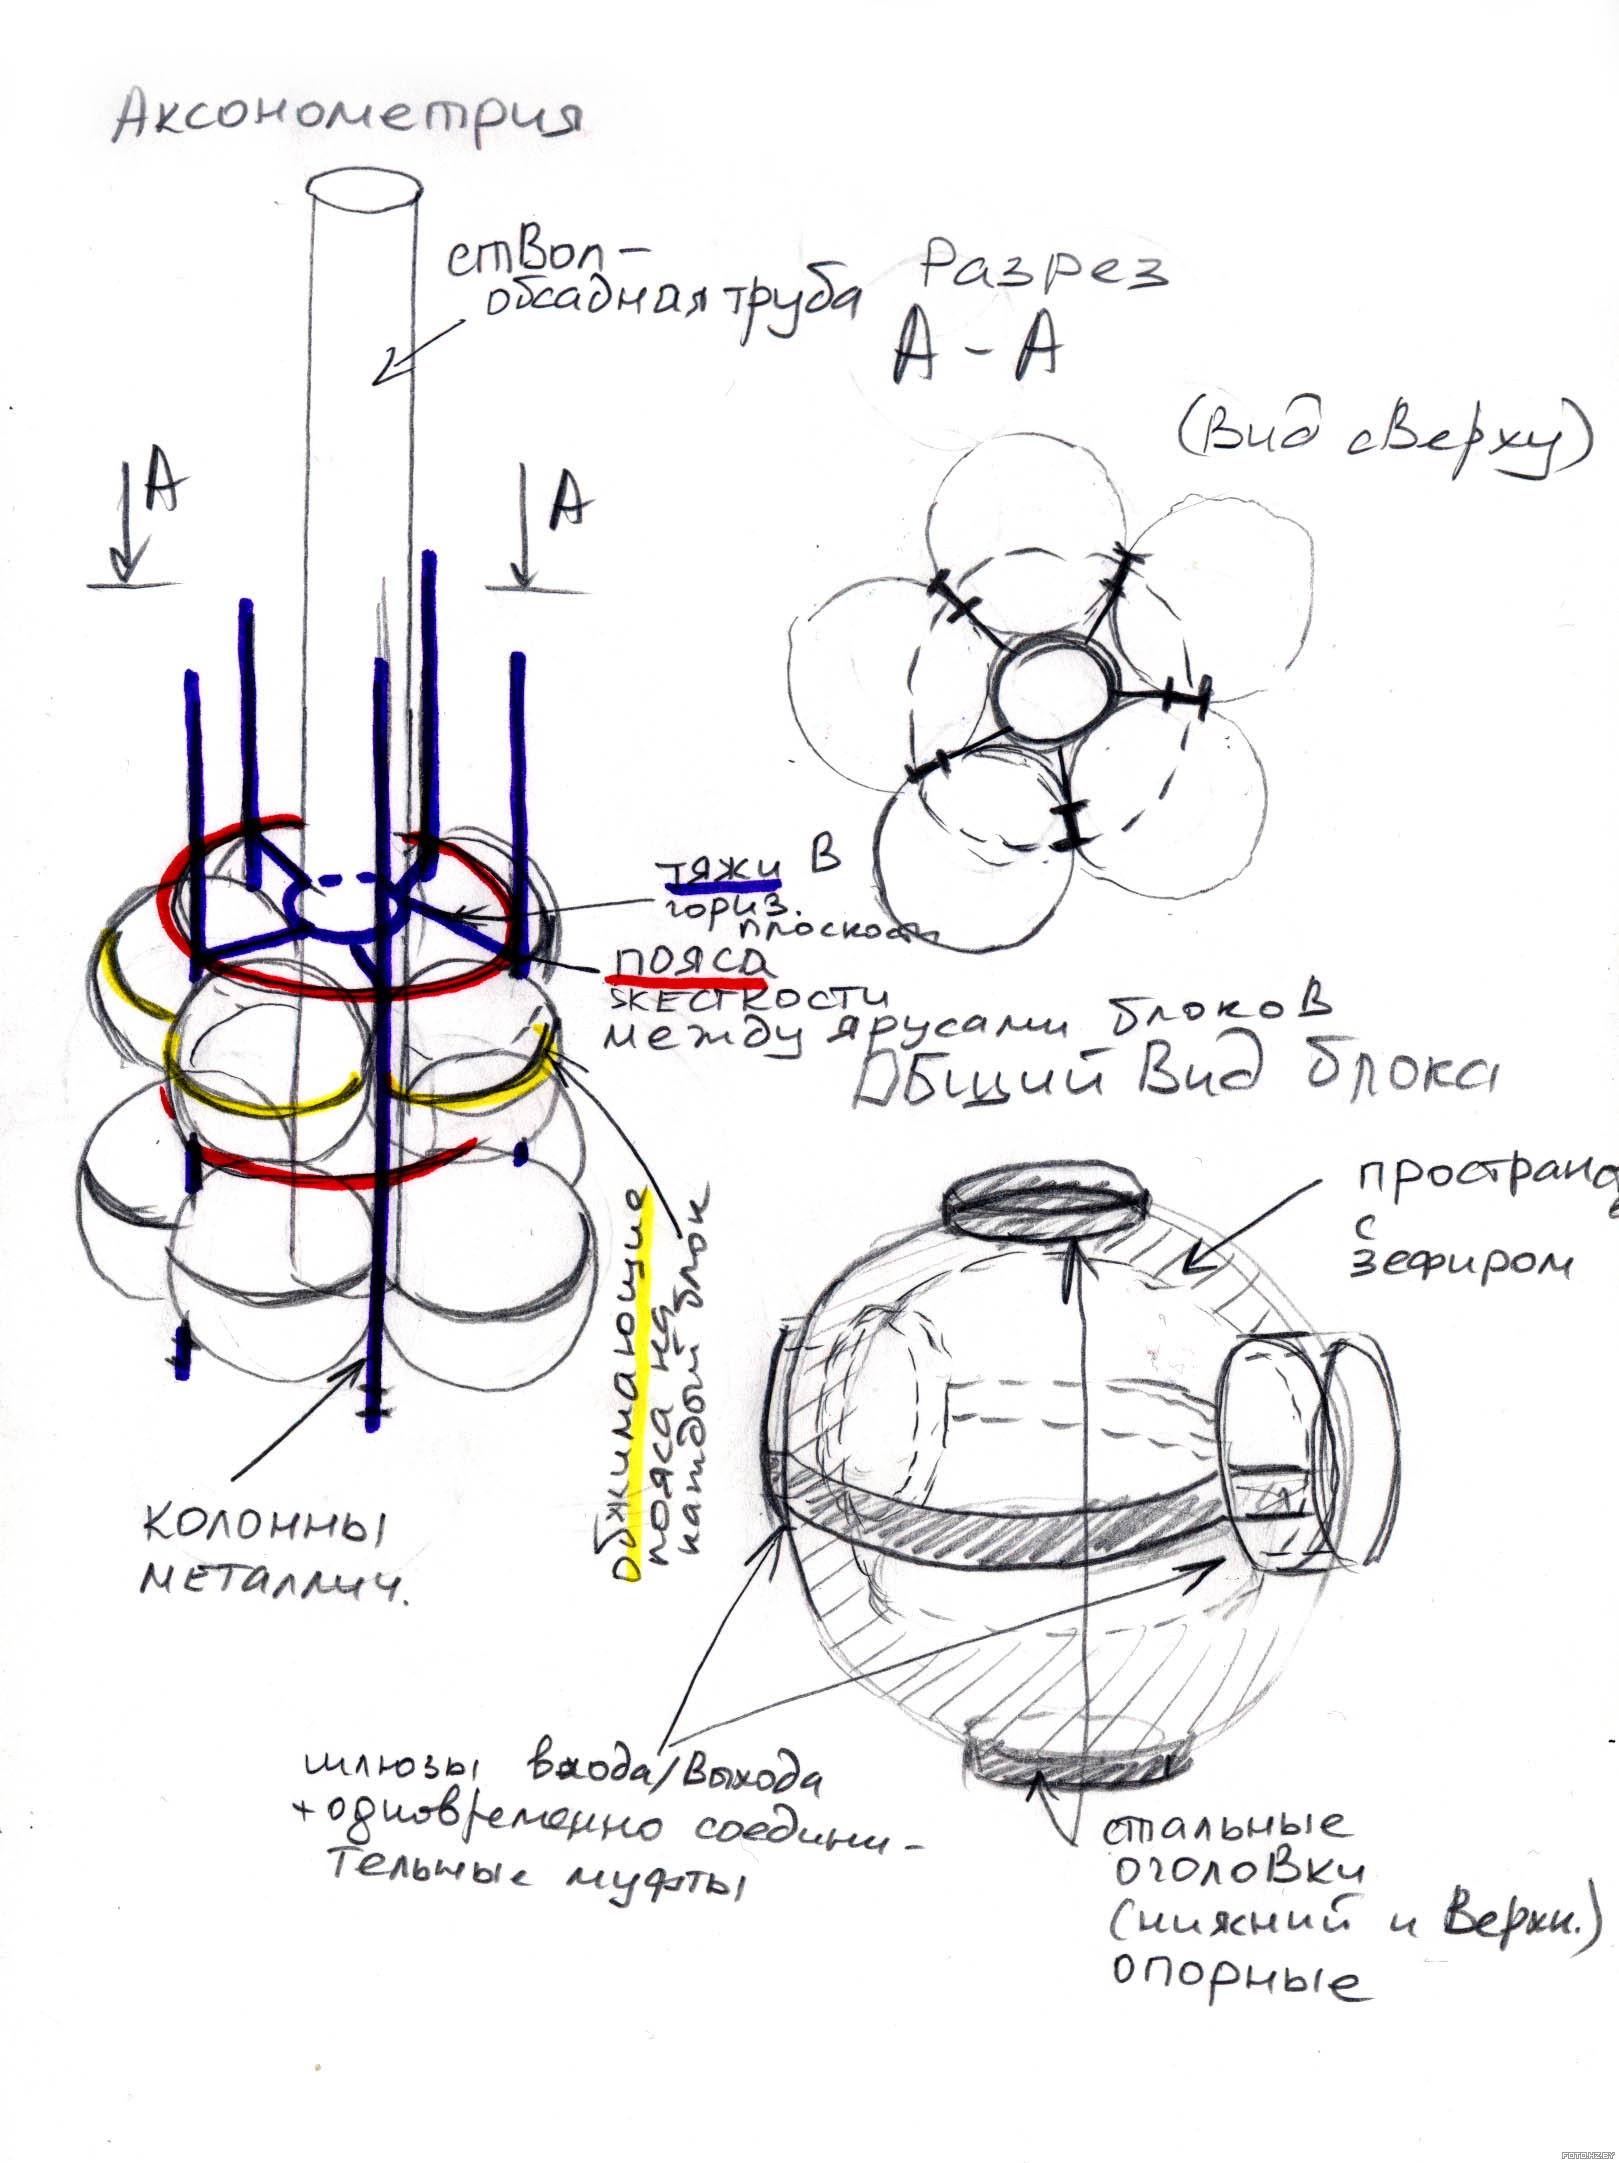 Аксонометрия
стВол –
обсадная труба
Разрез
А – А
(Вид сВерху)
А
А
тяжи В
гориз.
плоскости
пояса
жесткости
между ярусами блокоВ
ОБщий Вид блока
простран
с
зефиром
обжимающие
пояса на
каждый блок
колонны
металлич.
шлюзы входа/Выхода
+одновременно соедини –
тельные муфты
стальные
оголоВки
(нижний и Верхн.)
опорные
FOTO.HZ.BY